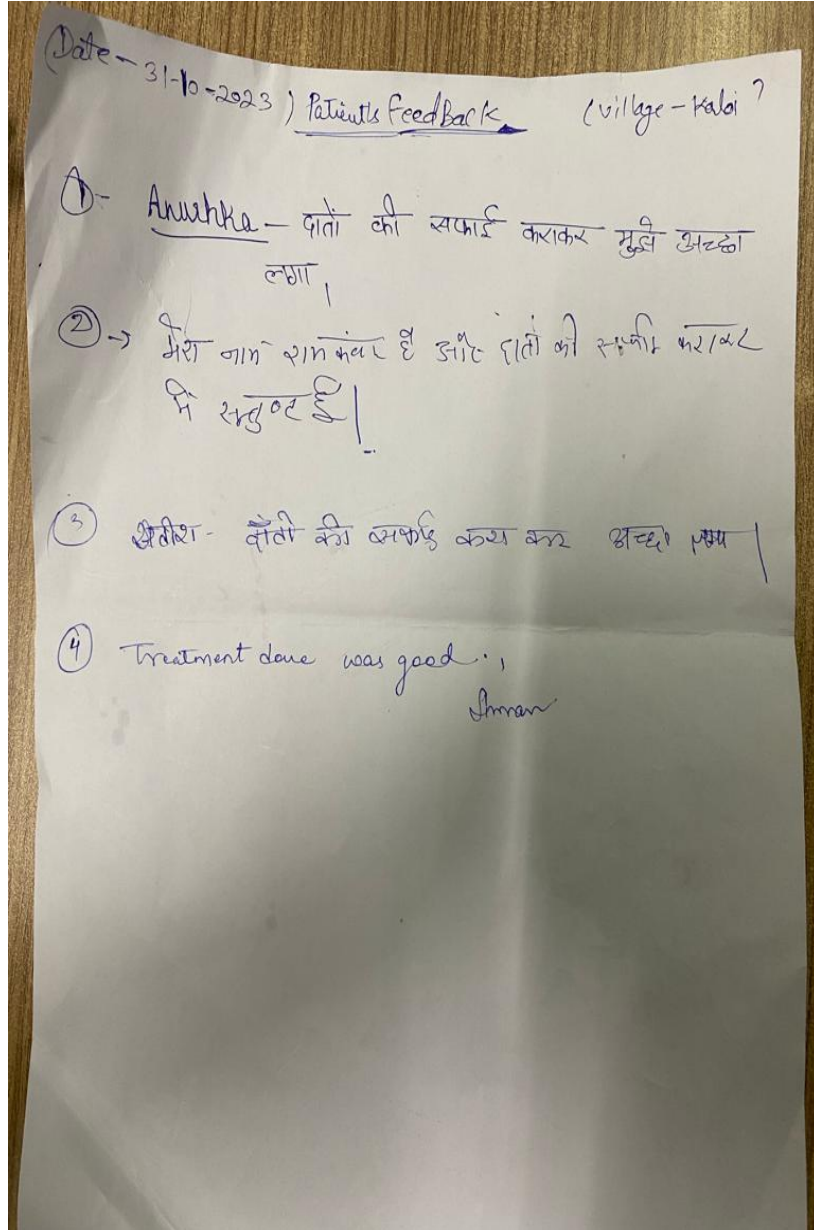 (Date - 31-10-2023) Patient's FeedBack (village - Kaloi)
① - Anushka - दातों की सफाई कराकर मुझे अच्छा
लगा,
② → मेरा नाम राम कंवर है और दातों की सफाई कराकर
में सन्तुष्ट हूँ|
③ - दाँतो की सफाई करा कर अच्छा लगा |
④ Treatment done was good.,